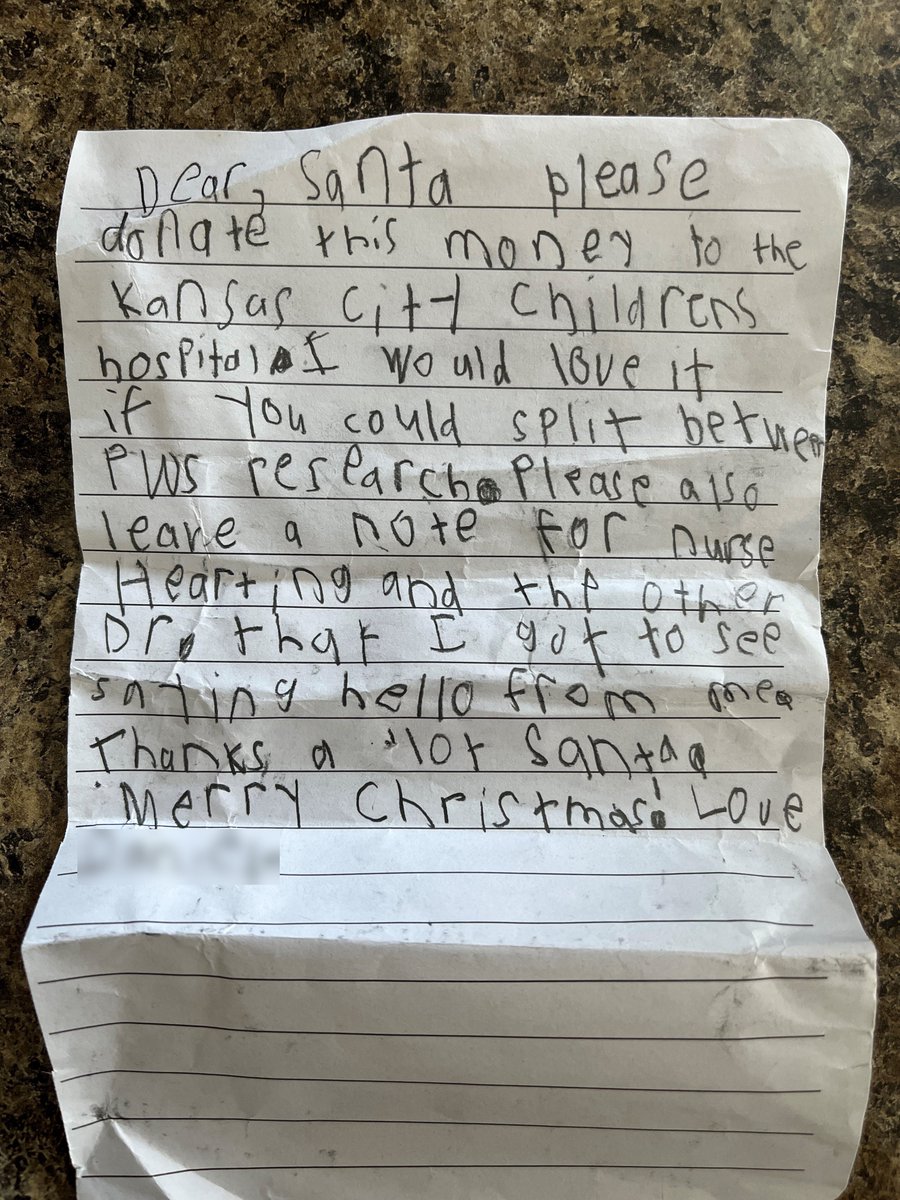 Dear, Santa please
donate this money to the
Kansas City Childrens
hospital. I would love it
if You could split between
PWS research. Please also
leave a note for nurse
Hearting and the other
Dr. that I got to see
saying hello from me.
Thanks a lot Santa.
Merry Christmas! Love